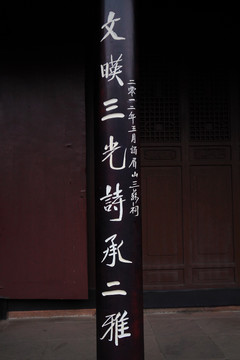 文暎三光詩承二雅
二零一二年五月謁眉山三蘇祠